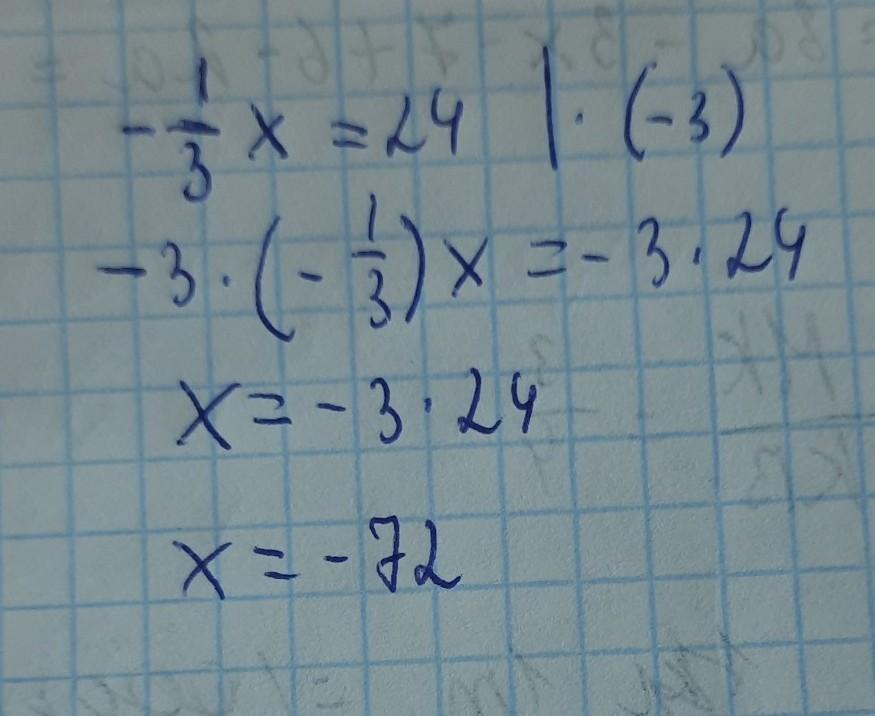 -1/3 x = 24 | · (-3)
-3 · (-1/3) x = -3 · 24
x = -3 · 24
x = -72